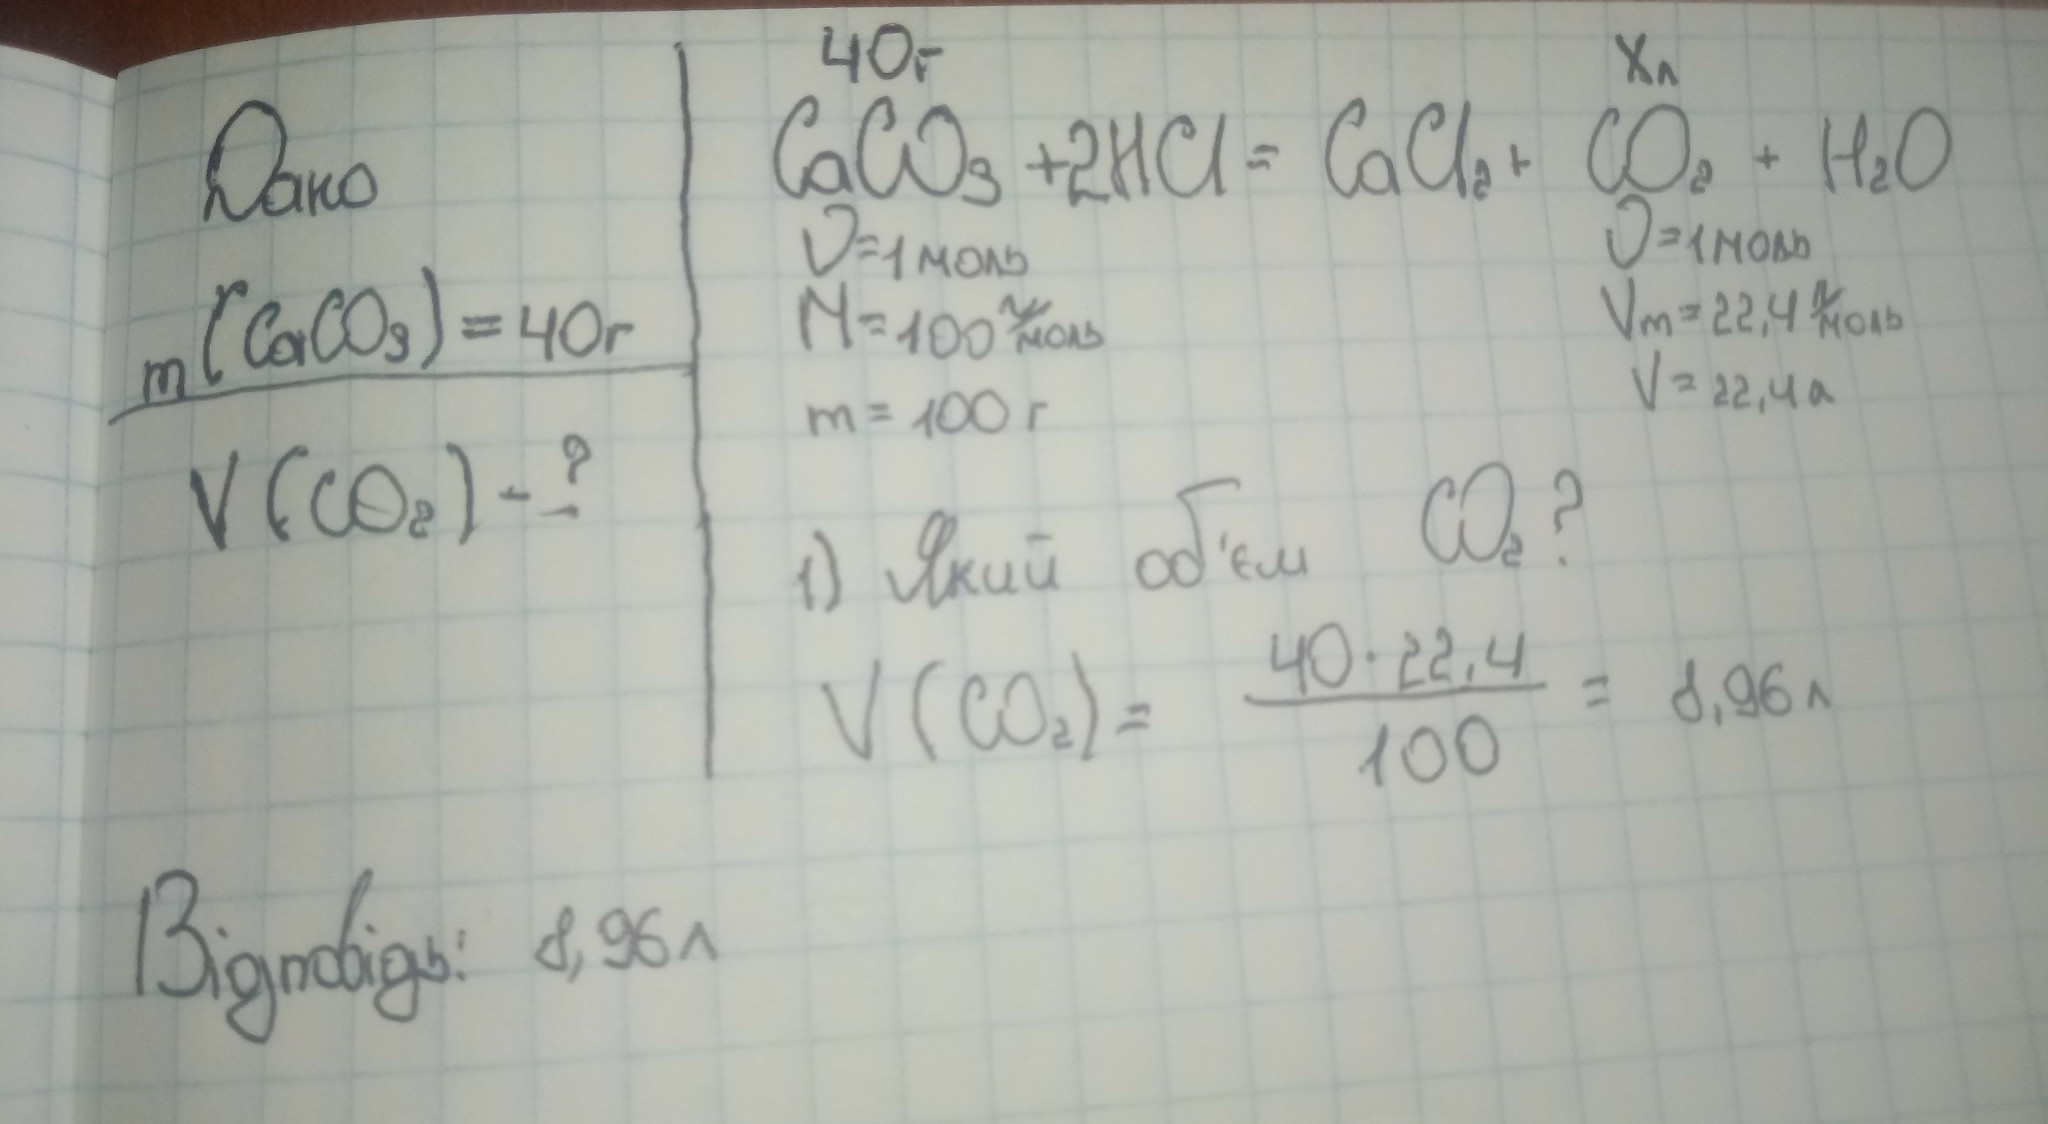 Дано
m(CaCO₃) = 40г
V(CO₂) - ?
40г Xл
CaCO₃ + 2HCl = CaCl₂ + CO₂ + H₂O
ν=1моль ν=1моль
M=100 г/моль Vm=22,4 л/моль
m=100г V=22,4л
1) Який об'єм CO₂?
V(CO₂) = 40·22,4 / 100 = 8,96л
Відповідь: 8,96л